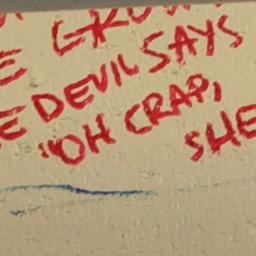 E GROU
E DEVIL SAYS
"OH CRAP,
SHE